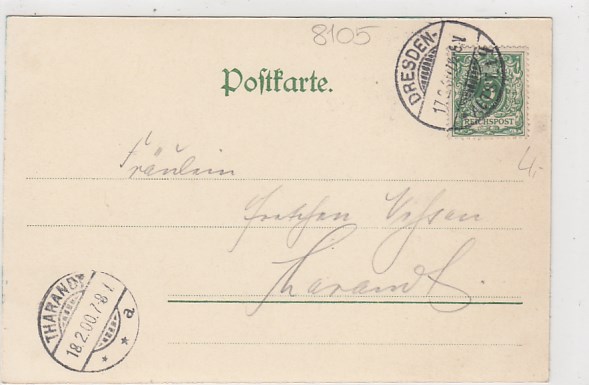 8105
Postkarte.
DRESDEN-
REICHSPOST
4,-
Fräulein
Gretchen
Tharandt.
THARANDT
18.2.00.7-8V.
* * a